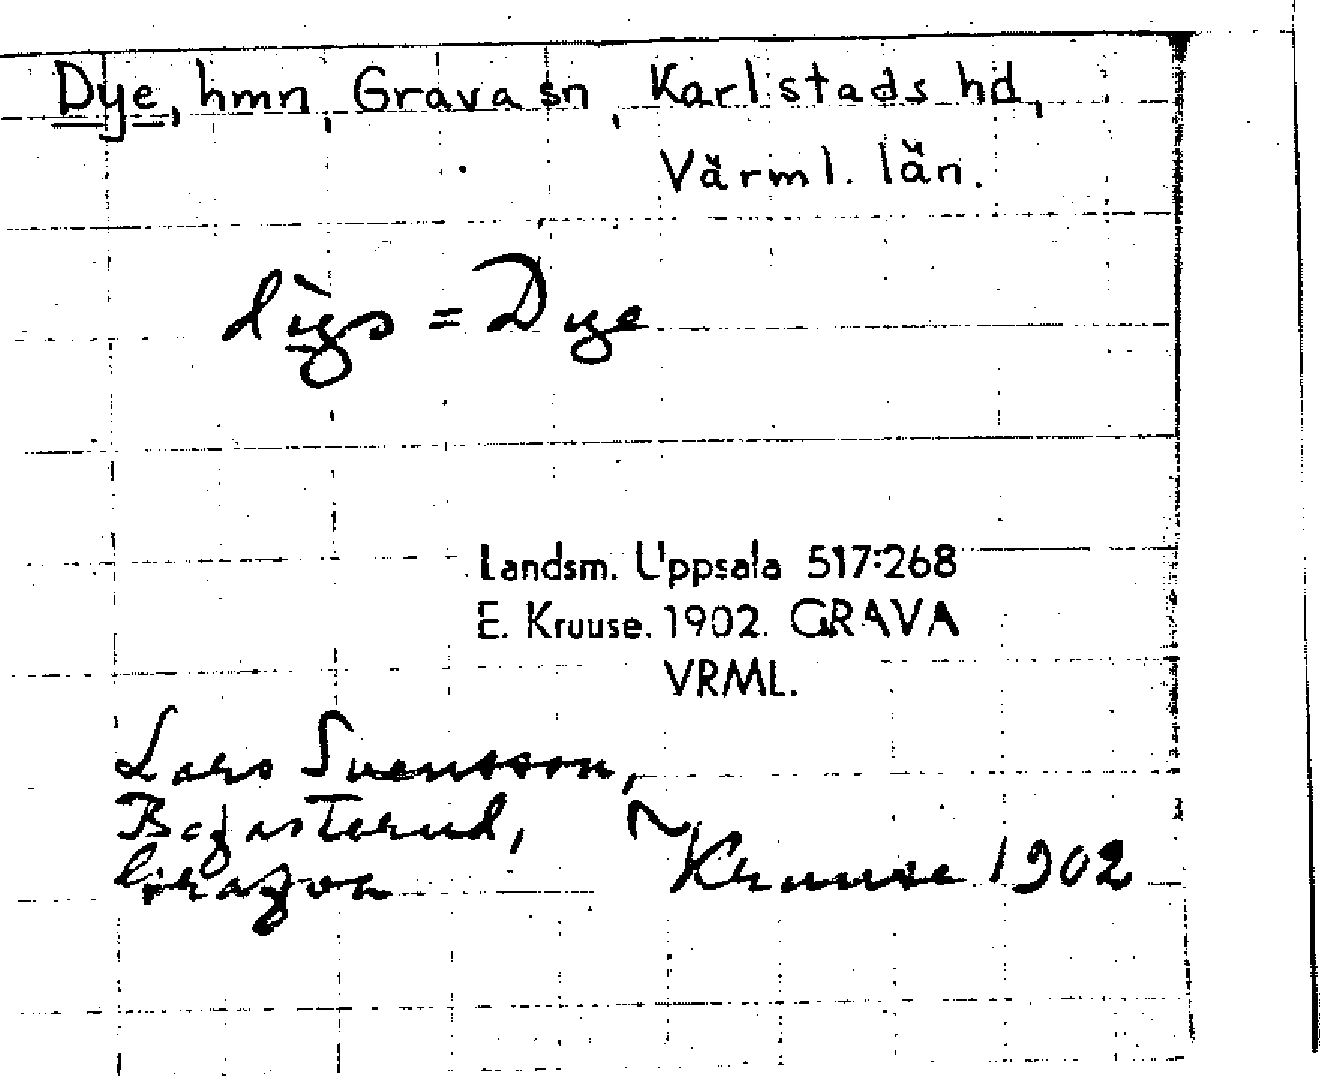 Dye, hmn, Grava sn, Karlstads hd,
Värml. län.
= Dye
Landsm. Uppsala 517:268
E. Kruuse. 1902. GRAVA
VRML.
Lars Svensson,
Kruuse 1902